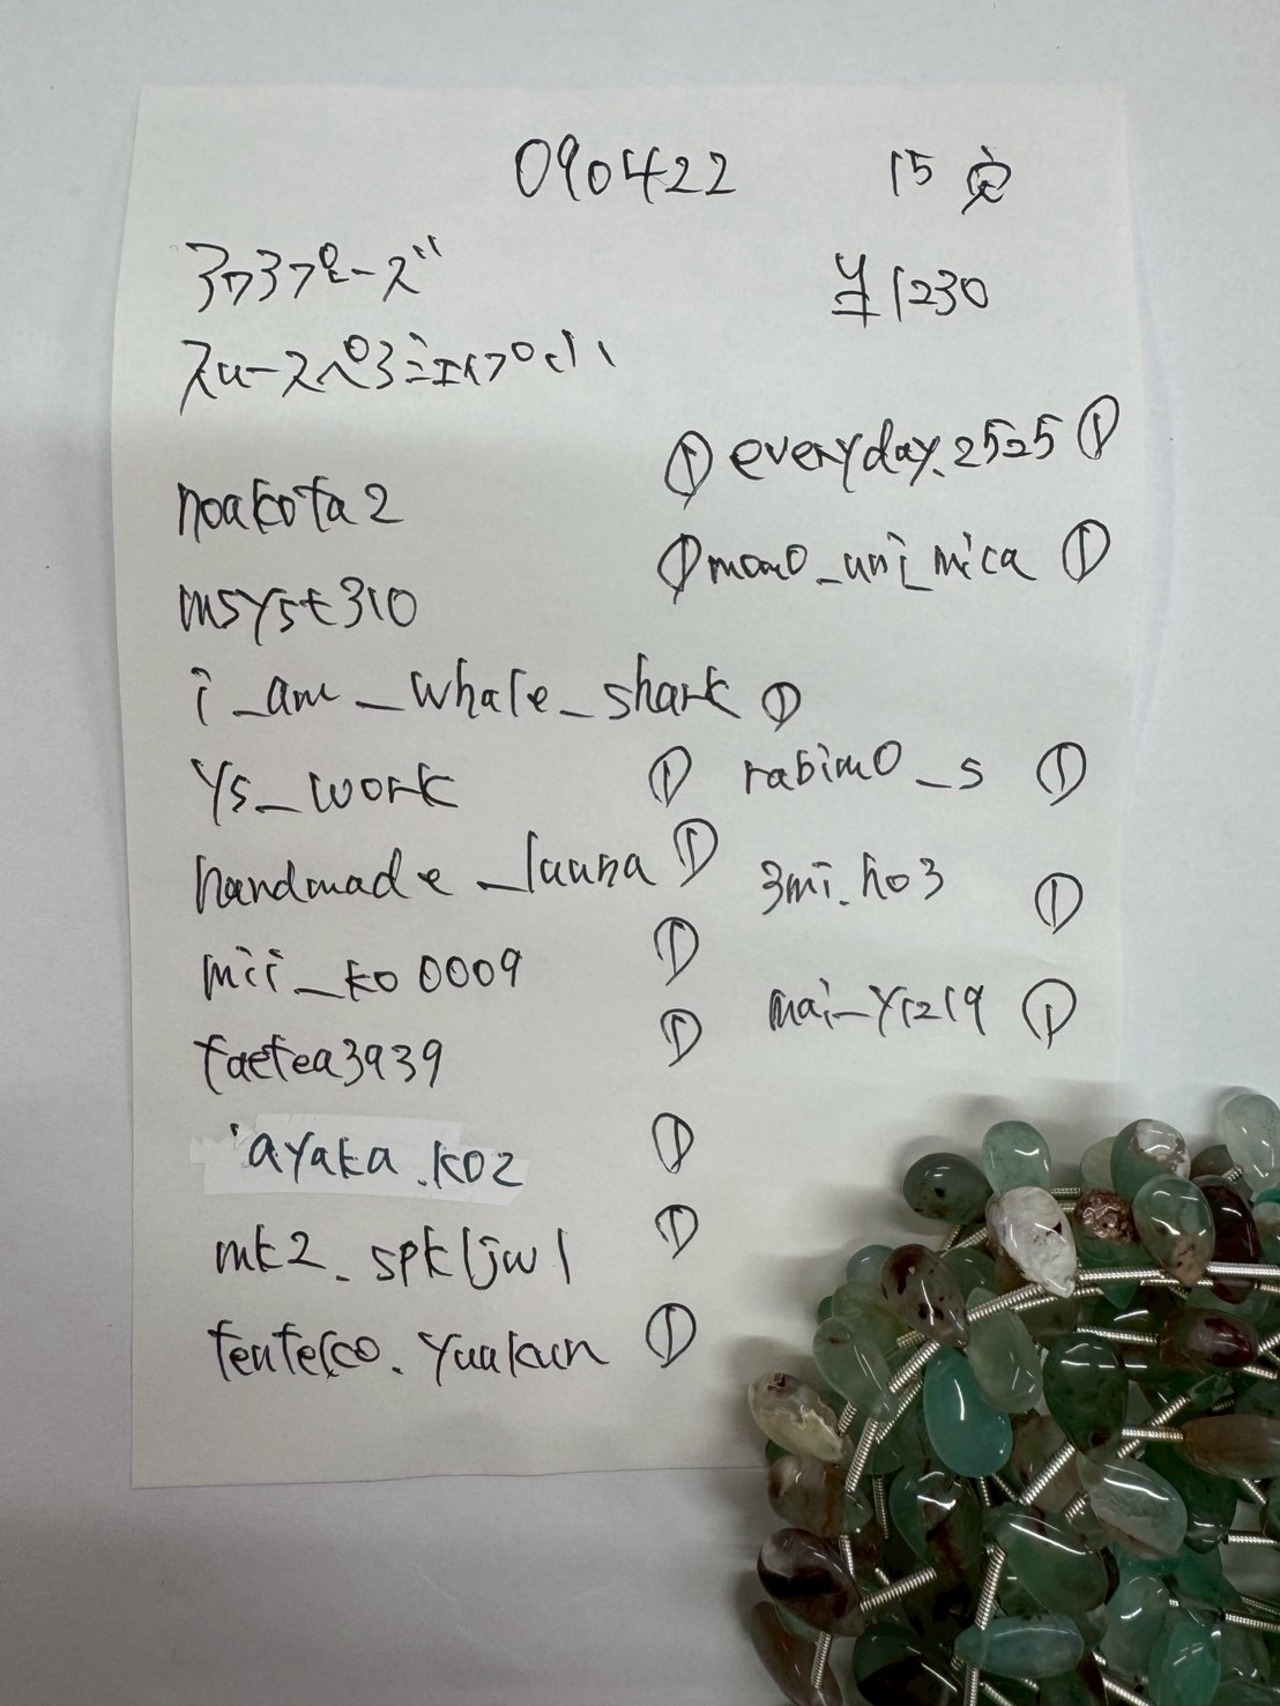 090422 15
アクアプレーズ
スムースペアシェイプ 小
¥1230
noakota2 ① everyday.2525 ①
msyst310 ① momo_uni_mica ①
i_am_whale_shark ①
ys_work ① rabimo_s ①
handmade_launa ① 3mi.ho3 ①
mii_ko0009 ① mai_y1219 ①
taetea3939 ①
ayaka.ko2 ①
mk2_spkljwl ①
tenteko.yuukun ①